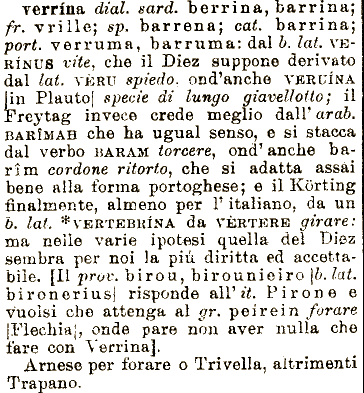 verrína dial. sard. berrina, barrina;
fr. vrille; sp. barrena; cat. barrina;
port. verruma, barruma: dal b. lat. VE-
RÍNUS vite, che il Diez suppone derivato
dal lat. VÈRU spiedo. ond'anche VERUÍNA
[in Plauto] specie di lungo giavellotto; il
Freytag invece crede meglio dall'arab.
BARÎMAH che ha ugual senso, e si stacca
dal verbo BARAM torcere, ond'anche ba-
rîm cordone ritorto, che si adatta assai
bene alla forma portoghese; e il Körting
finalmente, almeno per l'italiano, da un
b. lat. *VERTEBRÍNA da VÈRTERE girare:
ma nelle varie ipotesi quella del Diez
sembra per noi la più diritta ed accetta-
bile. [Il prov. birou, birounieiro [b. lat.
bironerius] risponde all'it. Pirone e
vuolsi che attenga al gr. peirein forare
[Flechia], onde pare non aver nulla che
fare con Verrina].
Arnese per forare o Trivella, altrimenti
Trapano.